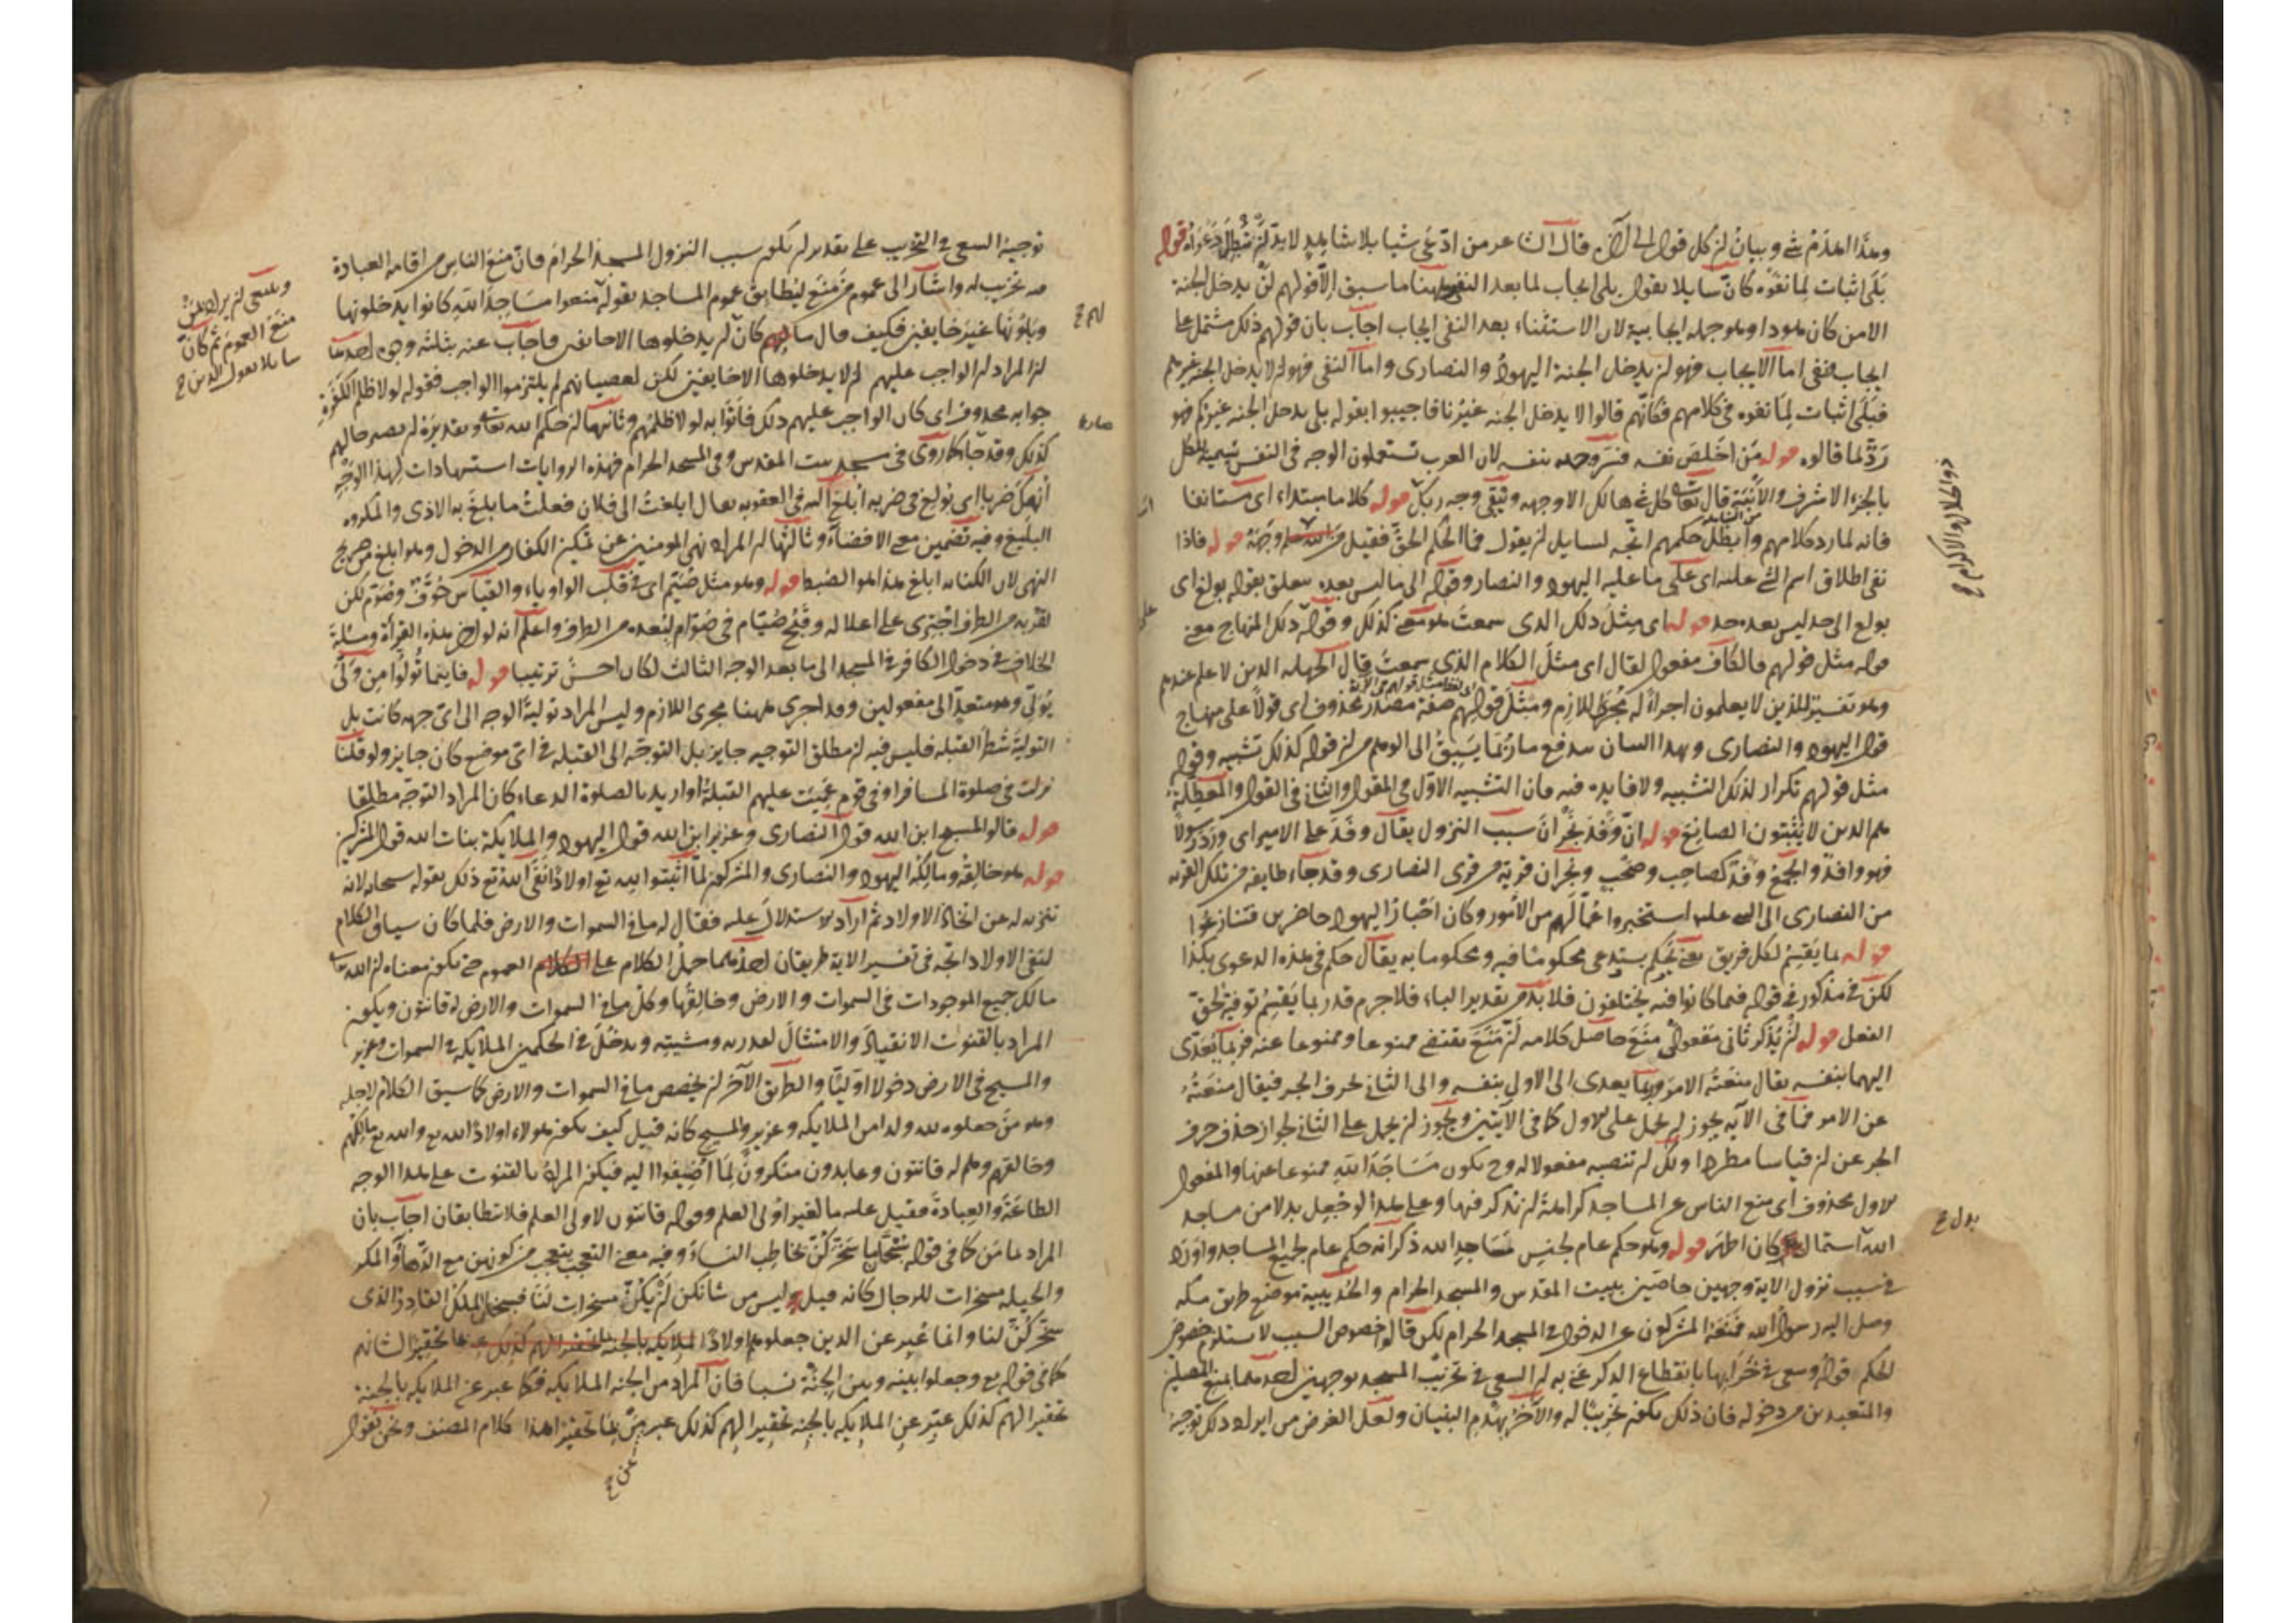 وهذا اهدم شيء وبيان ان كل قول الى الآخر قال الشاعر من ادعى شيا بلا شاهد لا بد ان تبطل دعواه قوله
بلى اثبات لما نفوه كان سايلا يقول بلى ايجاب لما بعد النفي وههنا ما سبق الا قولهم لن يدخل الجنة
الا من كان هودا وهو جملة ايجابية لان الاستثناء بعد النفي ايجاب اجاب بان قولهم ذلك مشتمل على
ايجاب ونفي اما الايجاب فهو ان يدخل الجنة اليهود والنصارى واما النفي فهو ان لا يدخل الجنة غيرهم
فبلى اثبات لما نفوه في كلامهم فكانهم قالوا لا يدخل الجنة غيرنا فاجيبوا بقوله بلى يدخل الجنة غيركم فهو
رد لما قالوه قوله من اخلص نفسه فسر وجهه بنفسه لان العرب تستعملون الوجه في النفس تسمية للكل
بالجزء الاشرف قال تعالى كل شيء هالك الا وجهه ويبقى وجه ربك قوله كلاما مبتداء اى مستانفا
فانه لما رد كلامهم وابطل حكمهم اتجه لسايل ان يقول فما الحكم الحق فقيل قوله فاذا
نفى اطلاق اسم الشي عليه اى على ما عليه اليهود والنصارى وقوله الى ما ليس بعده متعلق بقوله بولغ اى
بولغ الى حد ليس بعده حد قوله اى مثل ذلك الذى سمعت به معنى كذلك وقوله ذلك المنهاج معنى
قوله مثل قولهم فالكاف مفعول لقال اى مثل الكلام الذى سمعت قال الجهلة الذين لا علم عندهم
وهو تفسير للذين لا يعلمون اجراء له مجرى اللازم ومثل قولهم صفة مصدر محذوف اى قولا على منهاج
قول اليهود والنصارى وبهذا البيان يندفع ما ربما يسبق الى الوهم من ان قوله كذلك تشبيه وقوله
مثل قولهم تكرار لذلك التشبيه ولا فايدة فيه فان التشبيه الاول في المقول والثانى فى القول والمعطلة
هم الذين لا يثبتون الصانع قوله ان وفد نجران سبب النزول يقال وفد على الامير اى ورد رسولا
فهو وافد والجمع وفد كصاحب وصحب ونجران قرية من قرى النصارى وقد جاء طايفة من تلك القرية
من النصارى الى النبى عليه السلام استخبروا عما لهم من الامور وكان احبار اليهود حاضرين فتنازعوا
قوله بما يقسم لكل فريق يعنى يحكم يستدعى محكوما فيه ومحكوما به يقال حكم في هذه الدعوى بكذا
لكن في مذكور في قوله فيما كانوا فيه يختلفون فلا بد من تقدير الباء فلا جرم قدر بما يقسم توفية لحق
الفعل قوله ان يذكر ثانى مفعولى منع حاصل كلامه ان منع يقتضى ممنوعا وممنوعا عنه فربما يتعدى
اليهما بنفسه يقال منعته الامر وربما يتعدى الى الاول بنفسه والى الثانى بحرف الجر فيقال منعته
عن الامر فما في الآية يجوز ان يحمل على الاول كما في الآيتين ويجوز ان يحمل على الثانى لجواز حذف حرف
الجر عن ان قياسا مطردا ولك ان تنصبه مفعولا له وح يكون مساجد الله ممنوعا عنها والمفعول
الاول محذوف اى منع الناس عن المساجد كراهة ان تذكر فيها وعلى هذا لو جعل بدلا من مساجد
الله اشتمال كان اظهر قوله وهو حكم عام لجنس مساجد الله ذكر انه حكم عام لجميع المساجد واورد
في سبب نزول الاية وجهين خاصين ببيت المقدس والمسجد الحرام والحديبية موضع طريق مكة
وصل اليه رسول الله فمنعه المشركون عن الدخول في المسجد الحرام لكن قالوا خصوص السبب لا يستلزم خصوص
الحكم قوله وسعى في خرابها بانقطاع الذكر عنى به ان السعى في تخريب المسجد بوجهين احدهما بمنع المصلين
والمتعبدين من دخوله فان ذلك يكون تخريبا له والآخر بهدم البنيان ولعل الغرض من ايراد ذلك توجيه
بدل ح
توجيه السعى في التخريب على تقدير ان يكون سبب النزول المسجد الحرام فان منع الناس من اقامة العبادة
فيه تخريب له واشار الى عموم من منع ليطابق عموم المساجد بقوله منعوا مساجد الله كانوا يدخلونها
ويلونها غير خايفين فكيف قال ما لهم كان ان يدخلوها الا خايفين فاجاب عنه بثلثة وجوه احدها
ان المراد ان الواجب عليهم ان لا يدخلوها الا خايفين لكن لعصيانهم لم يلتزموا الواجب فقوله لولا ظلم الكفرة
جوابه محذوف اى كان الواجب عليهم ذلك فأتوا به لولا ظلمهم وثانيها ان حكم الله تعالى وتقديره ان يصير حالهم
كذلك وقد جاء كما روى في مسجد بيت المقدس وفي المسجد الحرام فهذه الروايات استشهادات لهذا الوجه
انهك ضربا اى بولغ في ضربه ابلغ اليه في العقوبة يقال ابلغت الى فلان فعلت ما بلغ به الاذى والمكروه
البليغ وفيه تضمين معنى الافضاء وثالثها ان المراد نهى المومنين عن تمكين الكفار من الدخول وهو ابلغ من صريح
النهى لان الكناية ابلغ هذا هو الضبط قوله وهو مثل صيم اى في قلب الواو ياء والقياس خوف وصوم لكن
لقربه من الطرف اجترى على اعلاله وقبح صيام في صوام لبعده من الطرف واعلم انه لو اخر هذه القراة ومسئلة
الخلاف في دخول الكافر في المسجد الى ما بعد الوجه الثالث لكان احسن ترتيبا قوله فاينما تولوا من ولى
يولى وهو متعد الى مفعولين وقد اجرى ههنا مجرى اللازم وليس المراد تولية الوجه الى اى جهة كانت بل
التولية شطر القبلة فليس فيه ان مطلق التوجيه جايز بل التوجه الى القبلة في اى موضع كان جايز ولو قلنا
نزلت في صلوة المسافر او في قوم عميت عليهم القبلة او اريد بالصلوة الدعاء كان المراد التوجه مطلقا
قوله قالوا المسيح ابن الله قول النصارى وعزير ابن الله قول اليهود والملايكة بنات الله قول المشركين
قوله هو خالقه ومالكه اليهود والنصارى والمشركون لما اثبتوا لله تع اولادا نفى الله تع ذلك بقوله سبحانه لانه
تنزيه له عن اتخاذ الاولاد ثم اراد الاستدلال عليه فقال له ما في السموات والارض فلما كان سياق الكلام
لنفى الاولاد اتجه في تفسير الاية طريقان احدهما حمل الكلام على العموم حتى يكون معناه ان الله تعالى
مالك جميع الموجودات في السموات والارض وخالقها وكل ما في السموات والارض له قانتون ويكون
المراد بالقنوت الانقياد والامتثال لقدرته ومشيته ويدخل في الحكمين الملايكة في السموات وعزير
والمسيح في الارض دخولا اوليا والطريق الآخر ان يخصص ما في السموات والارض كما سيق الكلام لاجله
وهو من جعلوه لله ولدا من الملايكة وعزير والمسيح كانه قيل كيف يكون هولاء اولادا لله تع والله تع مالكهم
وخالقهم وهم له قانتون وعابدون منكرون لما اضيفوا اليه فيكون المراد بالقنوت على هذا الوجه
الطاعة والعبادة فقيل عليه ما لغير اولى العلم وقوله قانتون لاولى العلم فلا تتطابقان اجاب بان
المراد بما من كما في قوله سبحان ما سخركن يخاطب النساء وفيه معنى التعجب يتعجب من كونهن مع الدهاء والمكر
والحيلة مسخرات للرجال كانه قيل وليس من شانكن ان يكن مسخرات لنا فسبحان الملك القادر الذى
سخركن لنا وانما عبر عن الذين جعلوهم اولادا بما تحقيرا لشانهم
كما في قوله تع وجعلوا بينه وبين الجنة نسبا فان المراد من الجنة الملايكة فكما عبر عن الملايكة بالجنة
تحقيرا لهم كذلك عبر عن الملايكة بالجنة تحقيرا لهم كذلك عبر عن من بما تحقيرا هذا كلام المصنف ونحن نقول
لهم ح
عن ح